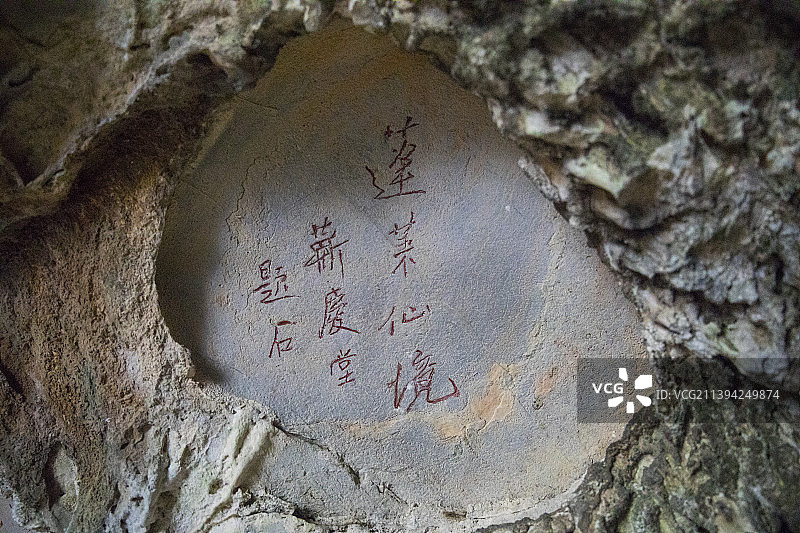 蓬莱仙境
蕲慶堂
題石
VCG
VCG211394249874